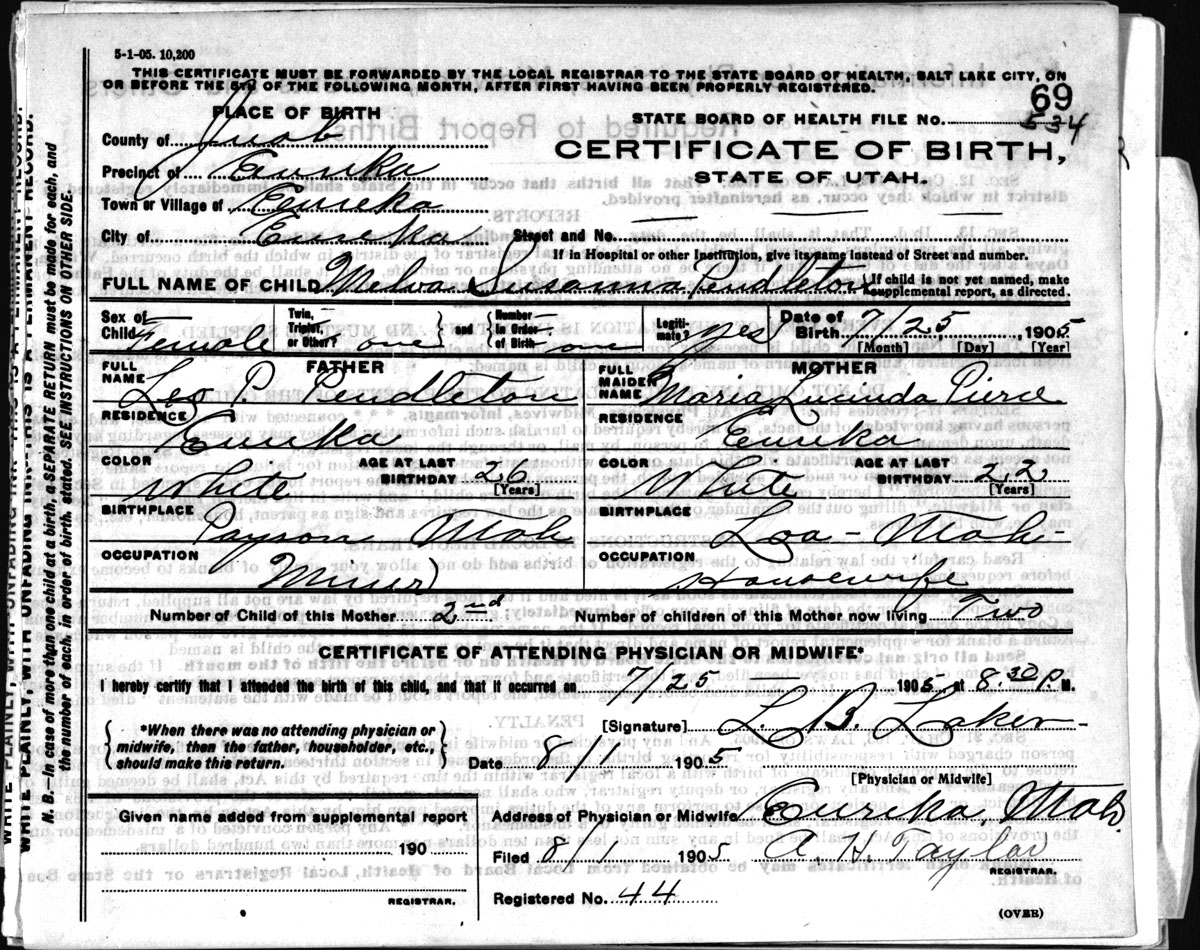 5-1-05. 10,200
THIS CERTIFICATE MUST BE FORWARDED BY THE LOCAL REGISTRAR TO THE STATE BOARD OF HEALTH, SALT LAKE CITY, ON
OR BEFORE THE 5TH OF THE FOLLOWING MONTH, AFTER FIRST HAVING BEEN PROPERLY REGISTERED.
69
PLACE OF BIRTH
STATE BOARD OF HEALTH FILE No. 534
County of Juab
CERTIFICATE OF BIRTH,
Precinct of Eureka
STATE OF UTAH.
Town or Village of Eureka
City of Eureka Street and No.
If in Hospital or other Institution, give its name instead of Street and number.
FULL NAME OF CHILD Melva Susanna Pendleton If child is not yet named, make supplemental report, as directed.
Sex of Child Female Twin, Triplet, or Other? one and Number in Order of Birth one Legitimate? yes Date of Birth 7/25, 1905
[Month] [Day] [Year]
FATHER MOTHER
FULL NAME Leo P. Pendleton FULL MAIDEN NAME Maria Lucinda Pierce
RESIDENCE RESIDENCE
Eureka Eureka
COLOR White AGE AT LAST BIRTHDAY 26 [Years] COLOR White AGE AT LAST BIRTHDAY 22 [Years]
BIRTHPLACE BIRTHPLACE
Payson Utah Loa - Utah -
OCCUPATION OCCUPATION
Miner Housewife
Number of Child of this Mother 2nd Number of children of this Mother now living Two
CERTIFICATE OF ATTENDING PHYSICIAN OR MIDWIFE*
I hereby certify that I attended the birth of this child, and that it occurred on 7/25 1905 at 8.30 P. M.
*When there was no attending physician or midwife, then the father, householder, etc., should make this return.
[Signature] L. B. Laker
Date 8/1 1905
[Physician or Midwife]
Given name added from supplemental report
Address of Physician or Midwife Eureka, Utah.
190
Filed 8/1 1905 A. H. Taylor
REGISTRAR.
REGISTRAR.
Registered No. 44
(OVER)
WRITE PLAINLY, WITH UNFADING INK—THIS IS A PERMANENT RECORD.
N. B.—In case of more than one child at a birth, a SEPARATE RETURN must be made for each, and
the number of each, in order of birth, stated. SEE INSTRUCTIONS ON OTHER SIDE.